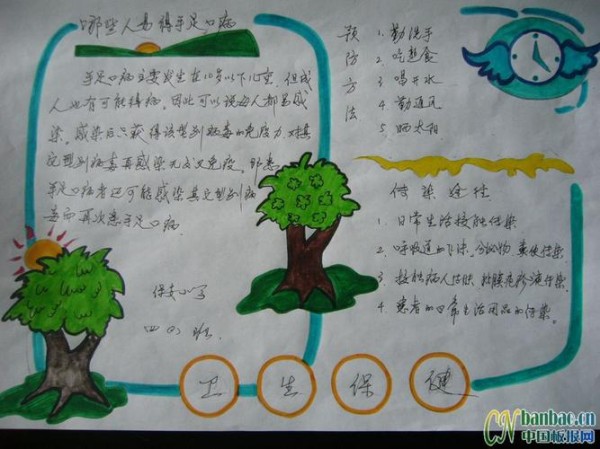 哪些人易得手足口病
手足口病主要发生在10岁以下儿童,但成
人也有可能得病。因此可以说每人都易感
染。感染后只获得该型别病毒的免疫力,对其
它型别病毒再感染无交叉免疫。即患
手足口病者还可能感染其它型别病
毒而再次患手足口病.
保安小学
四(4)班
预防方法
1.勤洗手
2.吃熟食
3喝开水
4.勤通风
5.晒太阳
传染途径
1.日常生活接触传染
2.呼吸道如飞沫、分泌物、粪便传染.
3、接触病人口腔、疱疹液传染.
4.患者的日常生活用品的传染。
卫生保健
CN banbao.cn
中国板报网